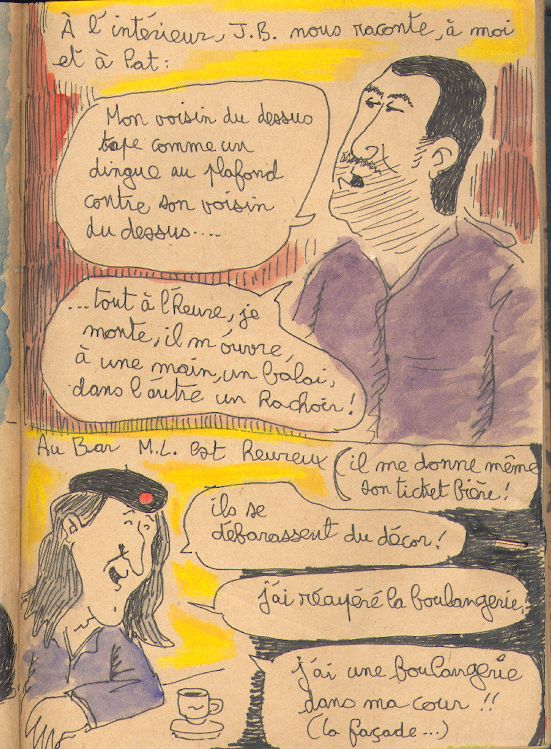 À l'intérieur, J.B. nous raconte, à moi
et à Pat:
Mon voisin du dessus
tape comme un
dingue au plafond
contre son voisin
du dessus....
...tout à l'heure, je
monte, il m'ouvre,
à une main, un balai,
dans l'autre un hachoir!
Au Bar M.L. est heureux
(il me donne même
son ticket bière!
ils se
débarassent du décor!
j'ai récupéré la boulangerie,
j'ai une boulangerie
dans ma cour!!
(la façade...)